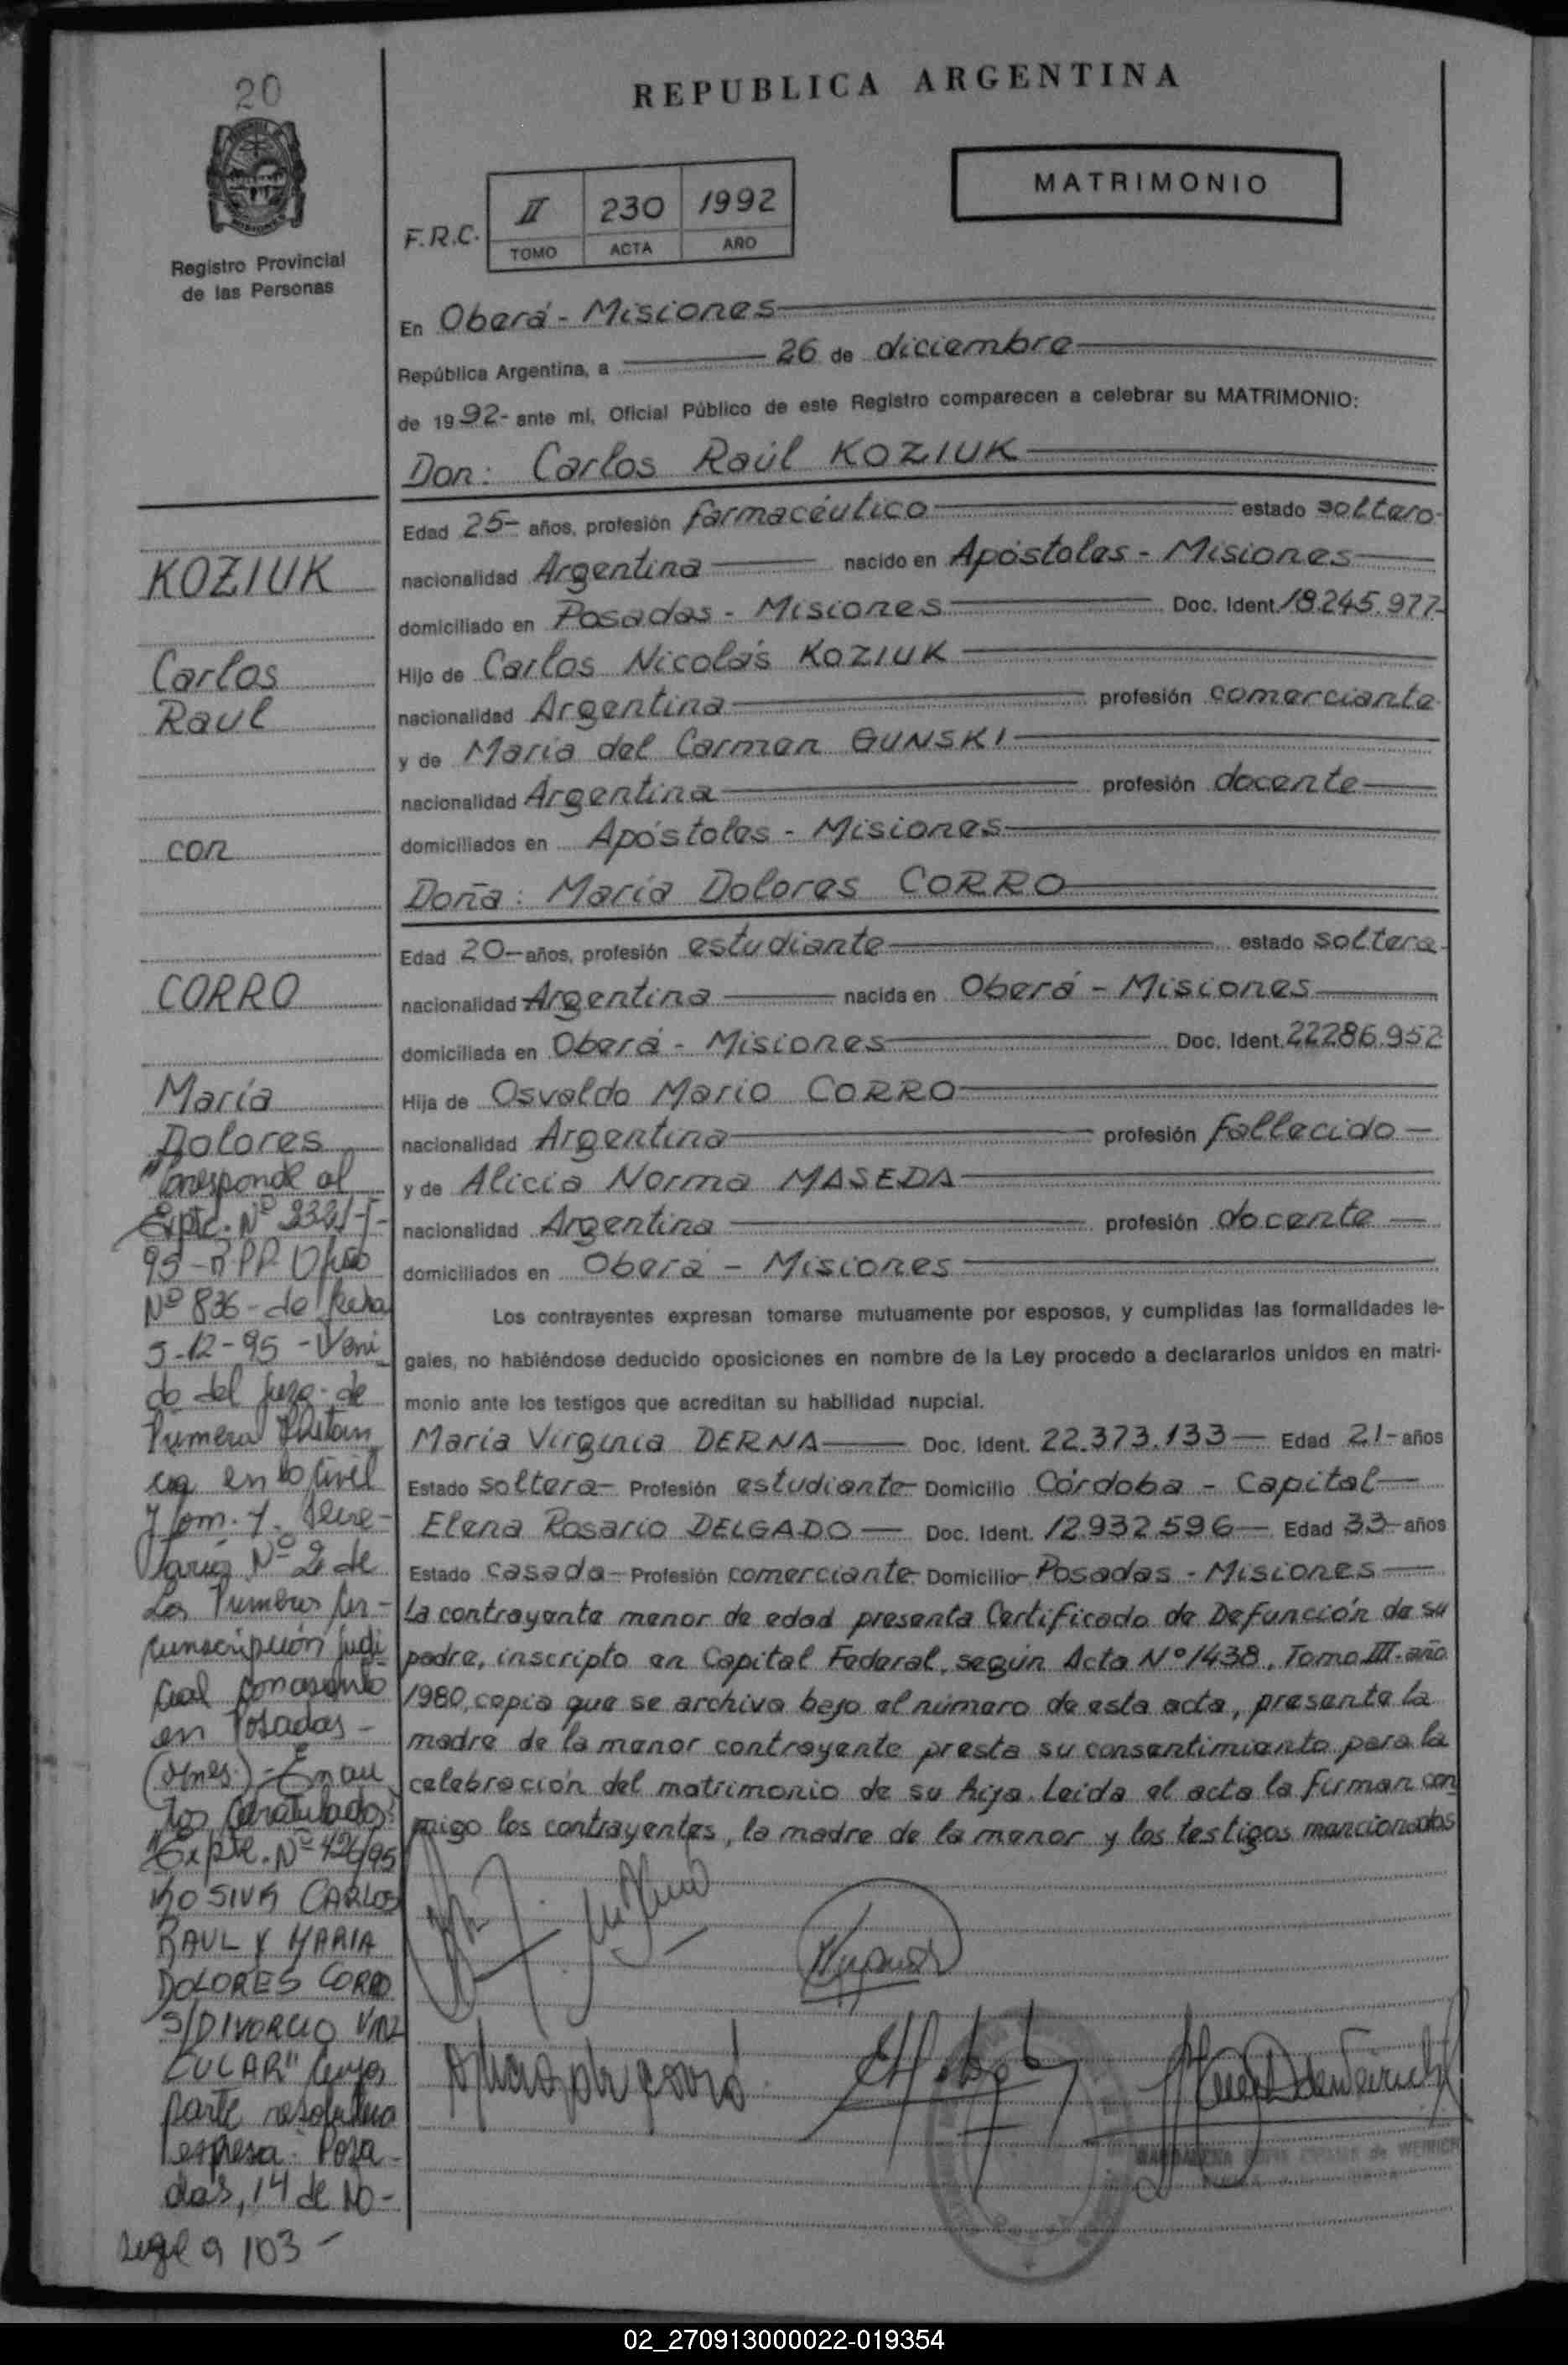 20
REPUBLICA ARGENTINA
MATRIMONIO
Registro Provincial
de las Personas
F.R.C.
II 230 1992
TOMO ACTA AÑO
En Oberá - Misiones
República Argentina, a 26 de diciembre
de 1992- ante mí, Oficial Público de este Registro comparecen a celebrar su MATRIMONIO:
Don: Carlos Raúl KOZIUK
Edad 25- años, profesión farmacéutico estado soltero-
nacionalidad Argentina nacido en Apóstoles - Misiones
domiciliado en Posadas - Misiones Doc. Ident. 18.245.977-
Hijo de Carlos Nicolás KOZIUK
nacionalidad Argentina profesión comerciante
y de María del Carmen GUNSKI
nacionalidad Argentina profesión docente
domiciliados en Apóstoles - Misiones
Doña: María Dolores CORRO
Edad 20- años, profesión estudiante estado soltera-
nacionalidad Argentina nacida en Oberá - Misiones
domiciliada en Oberá - Misiones Doc. Ident. 22286.952
Hija de Osvaldo Mario CORRO
nacionalidad Argentina profesión fallecido
y de Alicia Norma MASEDA
nacionalidad Argentina profesión docente
domiciliados en Oberá - Misiones
Los contrayentes expresan tomarse mutuamente por esposos, y cumplidas las formalidades le-
gales, no habiéndose deducido oposiciones en nombre de la Ley procedo a declararlos unidos en matri-
monio ante los testigos que acreditan su habilidad nupcial.
María Virginia DERNA Doc. Ident. 22.373.133 Edad 21- años
Estado soltera Profesión estudiante Domicilio Córdoba - Capital
Elena Rosario DELGADO Doc. Ident. 12.932.596 Edad 33- años
Estado casada Profesión comerciante Domicilio Posadas - Misiones
La contrayente menor de edad presenta Certificado de Defunción de su
padre, inscripto en Capital Federal, según Acta Nº 1438, Tomo III-año
1980, copia que se archiva bajo el número de esta acta, presente la
madre de la menor contrayente presta su consentimiento para la
celebración del matrimonio de su hija. Leida el acta la firman con
migo los contrayentes, la madre de la menor y los testigos mencionados
KOZIUK
Carlos
Raul
con
CORRO
María
Dolores
Corresponde al
Expte. Nº
95-
Nº 836- de fecha
5-12-95 - Veni
do del Juzg. de
Primera Instan
cia en lo Civil
y Com. Secre-
taría Nº 2 de
La Primera Cir-
cunscripción Judi
cial con asiento
en Posadas -
(Mnes.) - En au
tos Caratulados:
"Expte. Nº 426/95
KOSIUK CARLOS
RAUL Y MARIA
DOLORES CORRO
S/DIVORCIO VIN
CULAR" Cuya
parte resolutiva
expresa: Posa-
das, 14 de No-
sigue a 103 -
02_270913000022-019354